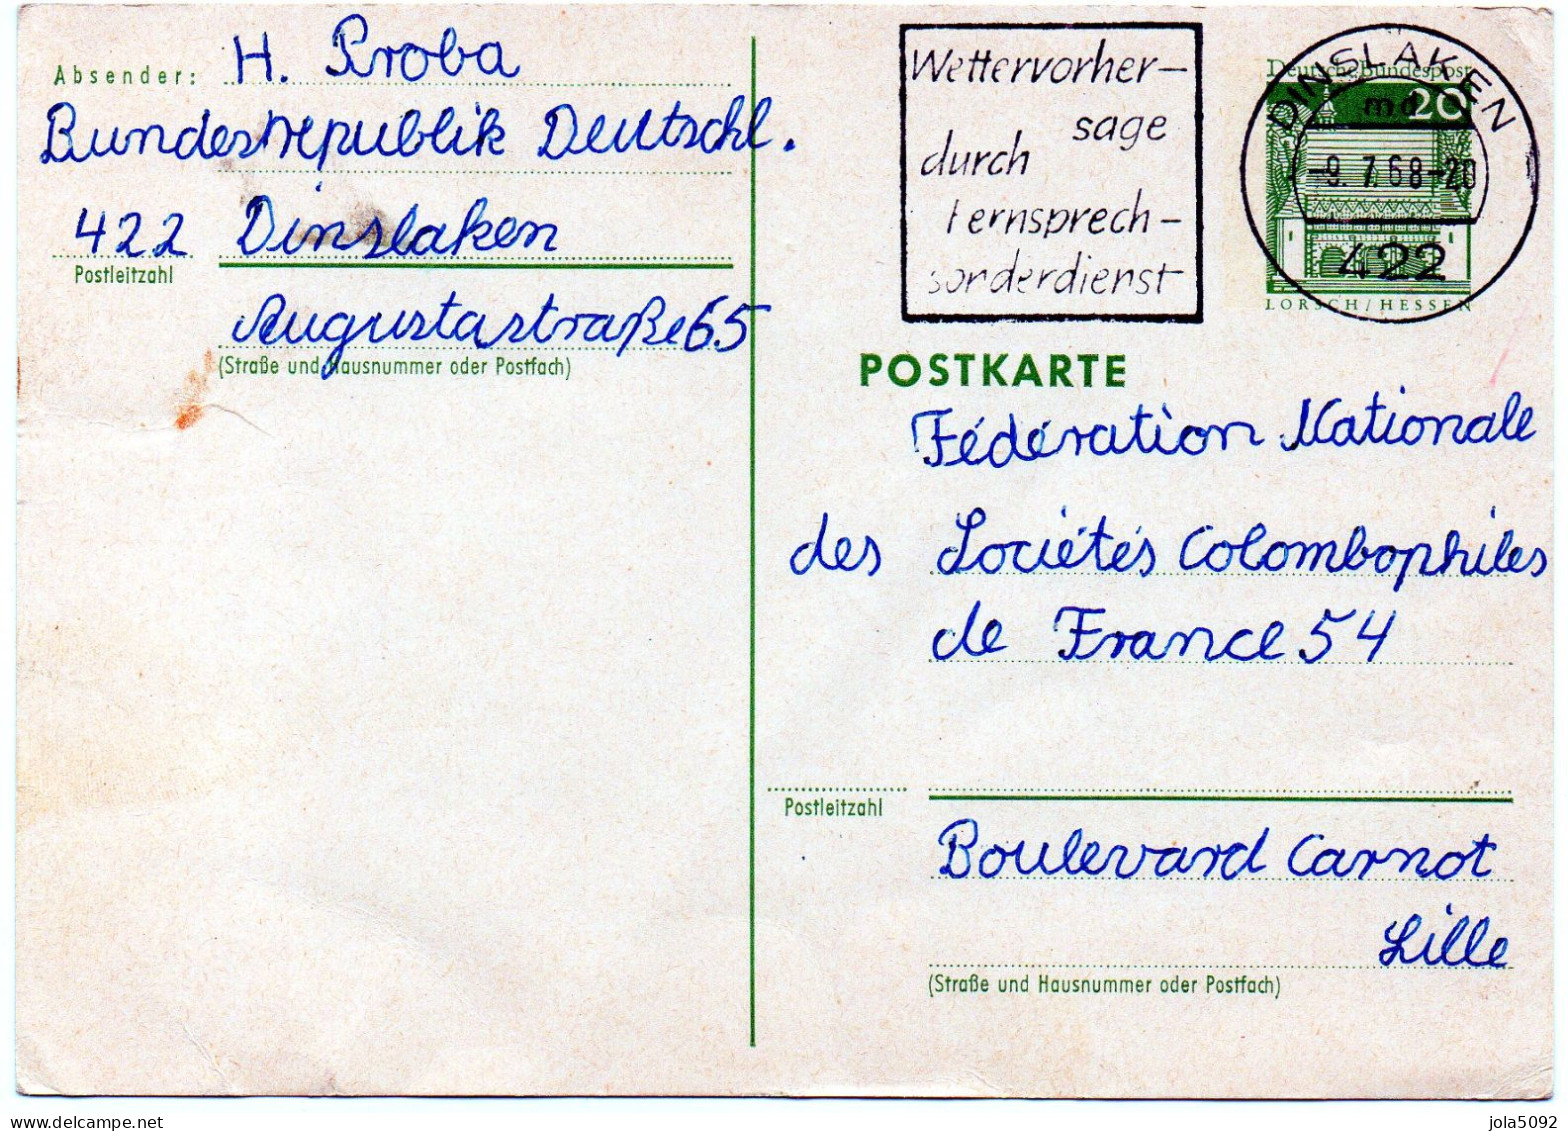 Absender: H. Proba
Bundesrepublik Deutschl.
422 Dinslaken
Postleitzahl
Augustastraße 65
(Straße und Hausnummer oder Postfach)
Wettervorher-
sage
durch
Fernsprech-
sonderdienst
DINSLAKEN
md
-9.7.68-20
422
Deutsche Bundespost
20
LORSCH/HESSEN
POSTKARTE
Fédération Nationale
des Sociétés Colombophiles
de France 54
Postleitzahl
Boulevard Carnot
Lille
(Straße und Hausnummer oder Postfach)
jola5092